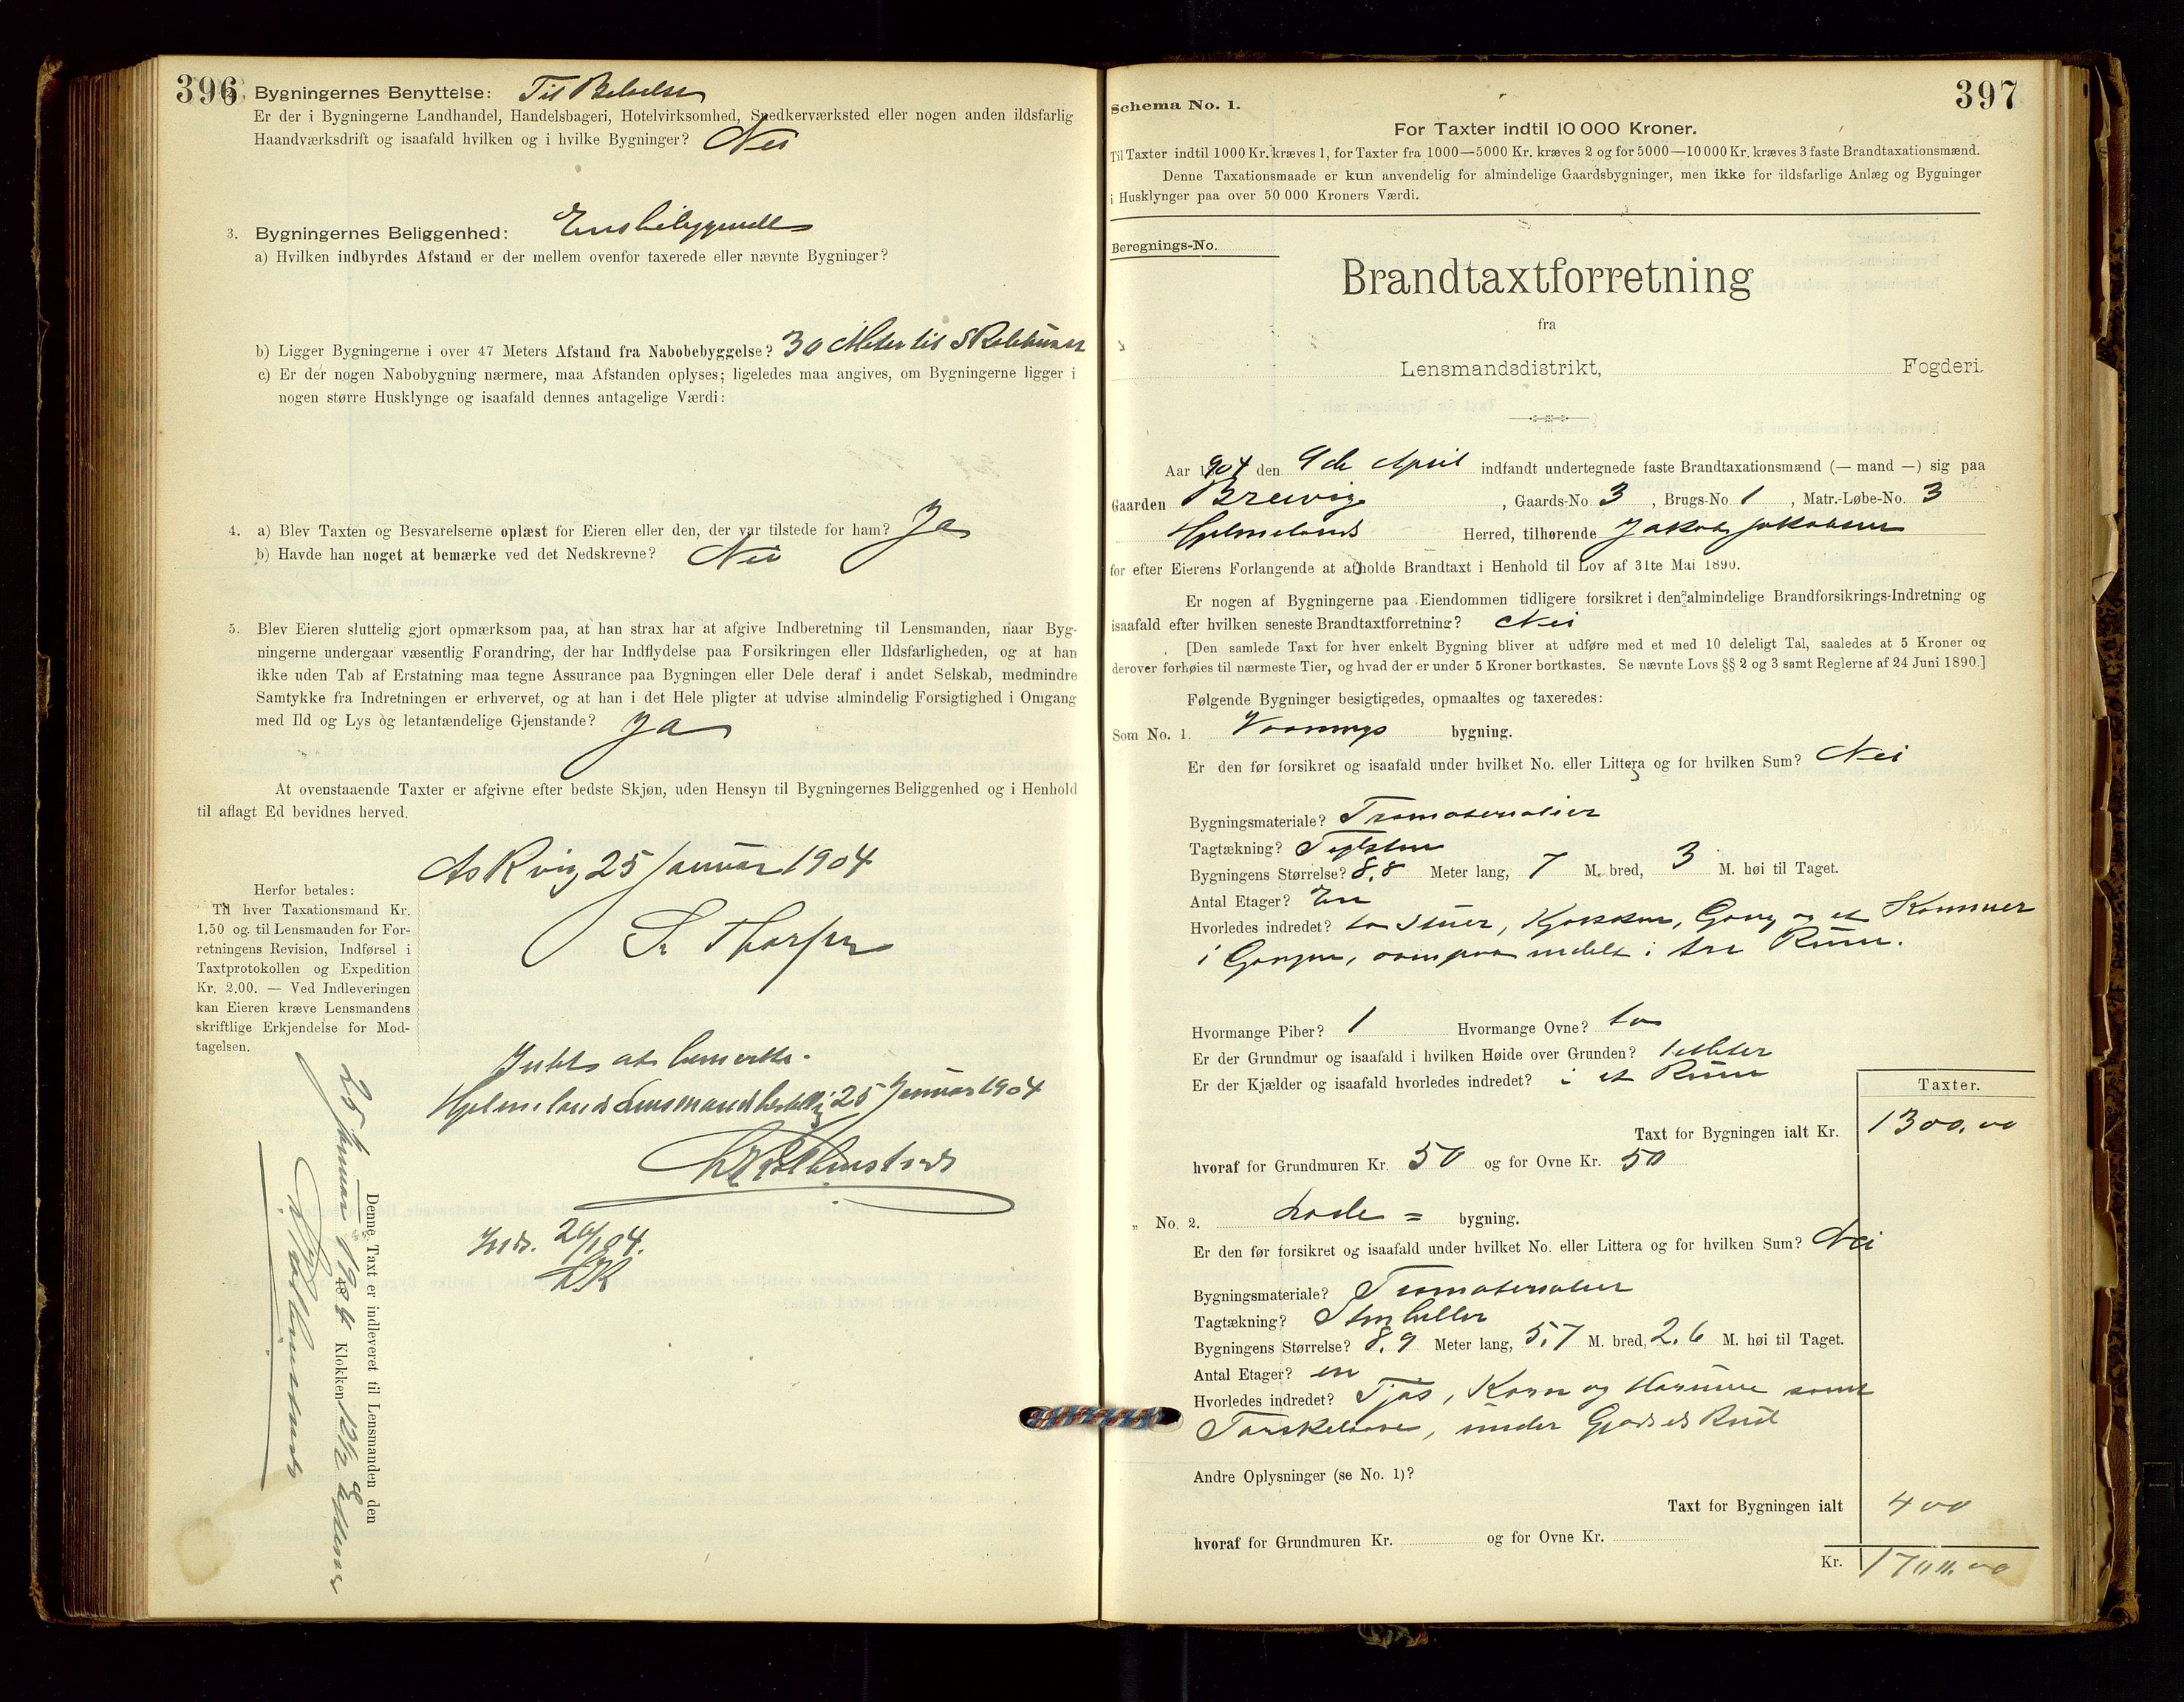 396
2. Bygningernes Benyttelse: Til Beboelse
Er der i Bygningerne Landhandel, Handelsbageri, Hotelvirksomhed, Snedkerværksted eller nogen anden ildsfarlig
Haandværksdrift og isaafald hvilken og i hvilke Bygninger? Nei
3. Bygningernes Beliggenhed:
a) Hvilken indbyrdes Afstand er der mellem ovenfor taxerede eller nævnte Bygninger?
b) Ligger Bygningerne i over 47 Meters Afstand fra Nabobebyggelse? 30 Meter til Skolehuset
c) Er der nogen Nabobygning nærmere, maa Afstanden oplyses; ligeledes maa angives, om Bygningerne ligger i
nogen større Husklynge og isaafald dennes antagelige Værdi:
4. a) Blev Taxten og Besvarelserne oplæst for Eieren eller den, der var tilstede for ham? Ja
b) Havde han noget at bemærke ved det Nedskrevne? Nei
5. Blev Eieren sluttelig gjort opmærksom paa, at han strax har at afgive Indberetning til Lensmanden, naar Byg-
ningerne undergaar væsentlig Forandring, der har Indflydelse paa Forsikringen eller Ildsfarligheden, og at han
ikke uden Tab af Erstatning maa tegne Assurance paa Bygningen eller Dele deraf i andet Selskab, medmindre
Samtykke fra Indretningen er erhvervet, og at han i det Hele pligter at udvise almindelig Forsigtighed i Omgang
med Ild og Lys og letantændelige Gjenstande? Ja
At ovenstaaende Taxter er afgivne efter bedste Skjøn, uden Hensyn til Bygningernes Beliggenhed og i Henhold
til aflagt Ed bevidnes herved.
Askvig 25 Januar 1904
Herfor betales:
Til hver Taxationsmand Kr.
1.50 og til Lensmanden for For-
retningens Revision, Indførsel i
Taxtprotokollen og Expedition
Kr. 2.00. — Ved Indleveringen
kan Eieren kræve Lensmandens
skriftlige Erkjendelse for Mod-
tagelsen.
Intet at bemerke.
Hjelmeland Lensmandsbestilling 25 Januar 1904
Denne Taxt er indleveret til Lensmanden den
25 Januar 1904 Klokken 12½ Efterm
Schema No. 1.
397
For Taxter indtil 10 000 Kroner.
Til Taxter indtil 1000 Kr. kræves 1, for Taxter fra 1000—5000 Kr. kræves 2 og for 5000—10 000 Kr. kræves 3 faste Brandtaxationsmænd.
Denne Taxationsmaade er kun anvendelig for almindelige Gaardsbygninger, men ikke for ildsfarlige Anlæg og Bygninger
i Husklynger paa over 50 000 Kroners Værdi.
Beregnings-No.
Brandtaxtforretning
fra
Lensmandsdistrikt, Fogderi.
Aar 1904 den 9de April indfandt undertegnede faste Brandtaxationsmænd (— mand —) sig paa
Gaarden Brevig, Gaards-No. 3, Brugs-No. 1, Matr.-Løbe-No. 3
Hjelmelands Herred, tilhørende Jakob Jakobsen
for efter Eierens Forlangende at afholde Brandtaxt i Henhold til Lov af 31te Mai 1890.
Er nogen af Bygningerne paa Eiendommen tidligere forsikret i den almindelige Brandforsikrings-Indretning og
isaafald efter hvilken seneste Brandtaxtforretning? Nei
[Den samlede Taxt for hver enkelt Bygning bliver at udføre med et med 10 deleligt Tal, saaledes at 5 Kroner og
derover forhøies til nærmeste Tier, og hvad der er under 5 Kroner bortkastes. Se nævnte Lovs §§ 2 og 3 samt Reglerne af 24 Juni 1890.]
Følgende Bygninger besigtigedes, opmaaltes og taxeredes:
Som No. 1. Vaanings bygning.
Er den før forsikret og isaafald under hvilket No. eller Littera og for hvilken Sum? Nei
Bygningsmateriale? Træmaterialier
Tagtækning? Teglsten
Bygningens Størrelse? 8,8 Meter lang, 7 M. bred, 3 M. høi til Taget.
Antal Etager? En
Hvorledes indredet? to Stuer, Kjøkken, Gang og et Kammer
i Gangen, ovenpaa indelt i tre Rum.
Hvormange Piber? 1 Hvormange Ovne? to
Er der Grundmur og isaafald i hvilken Høide over Grunden? 1 Meter
Er der Kjælder og isaafald hvorledes indredet? i et Rum
Taxter.
Taxt for Bygningen ialt Kr. 1300,00
hvoraf for Grundmuren Kr. 50 og for Ovne Kr. 50
„ No. 2. Lade = bygning.
Er den før forsikret og isaafald under hvilket No. eller Littera og for hvilken Sum? Nei
Bygningsmateriale? Træmaterialier
Tagtækning? Stenheller
Bygningens Størrelse? 8,9 Meter lang, 5,7 M. bred, 2,6 M. høi til Taget.
Antal Etager? en
Hvorledes indredet? Fjøs, Korn og Hørum samt
Tærskelaave, under Gjødselskud
Andre Oplysninger (se No. 1)?
Taxt for Bygningen ialt 400
hvoraf for Grundmuren Kr. og for Ovne Kr.
Kr. 1700,00